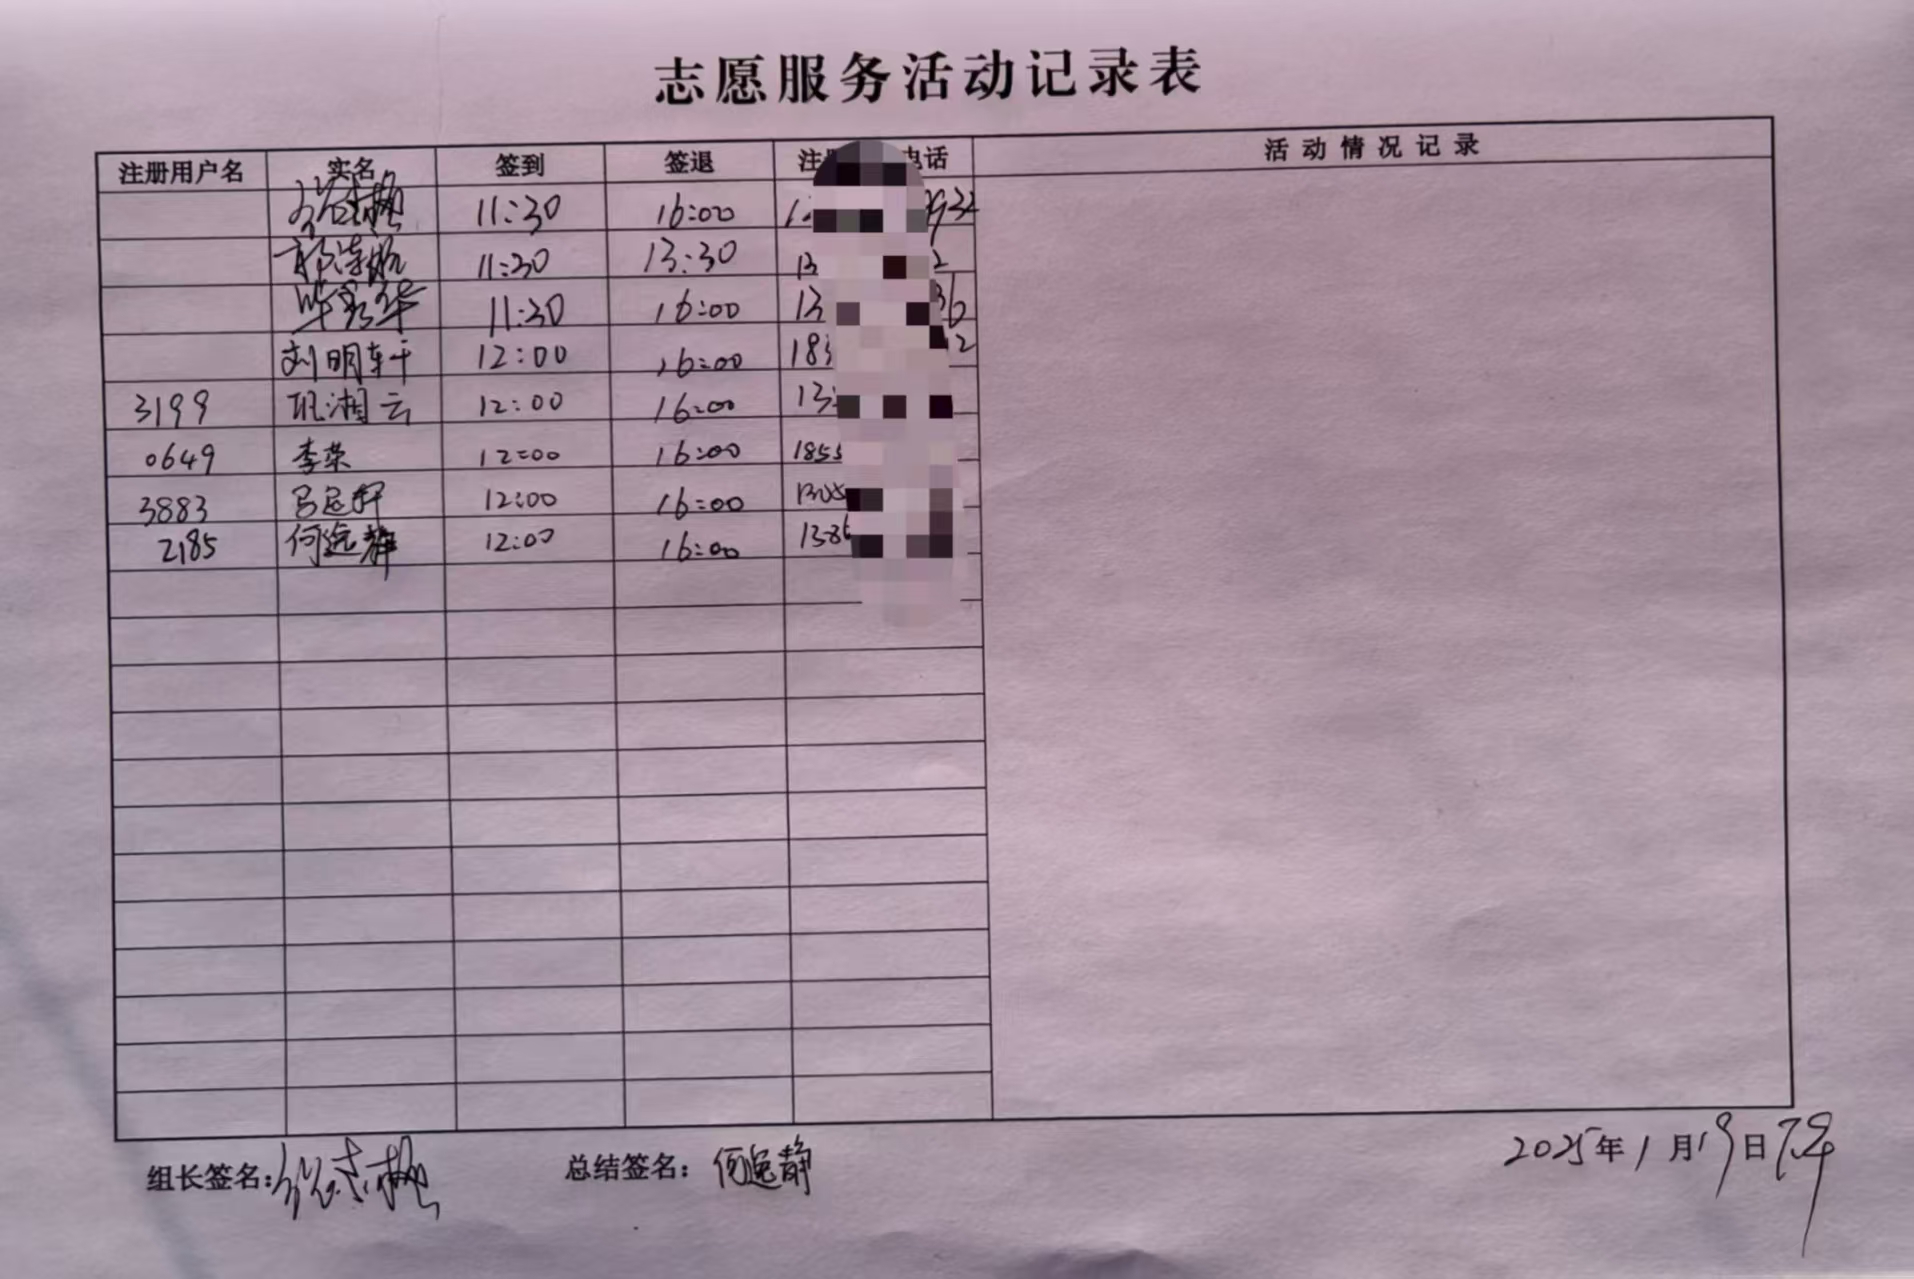 志愿服务活动记录表
注册用户名 实名 签到 签退 注 电话 活动情况记录
11:30 16:00 1 932
11:30 13:30 13 2
11:30 16:00 13 36
刘明轩 12:00 16:00 183 12
3199 巩湘云 12:00 16:00 13
0649 李荣 12:00 16:00 1855
3883 12:00 16:00
2185 何逸静 12:00 16:00 1386
组长签名: 总结签名: 何逸静 2025年1月19日